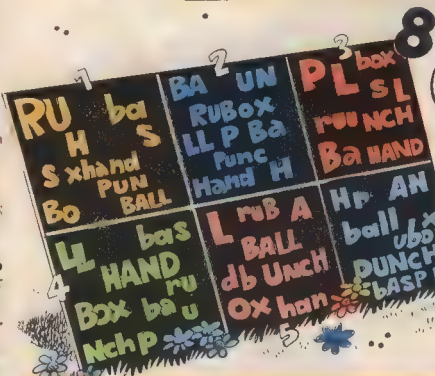 8
1
RU ba
H S
S xhand
PUN
Bo BALL
2
BA UN
RUBox
LL P Ba
Punc
Hand H
3
PL box
S L
ruu NCH
Ba HAND
4
LL bas
HAND
ru
Box ba u
Nch P
5
L ruB A
BALL
db UNCH
OX han
Hp AN
ball x
ubo
PUNCH
LASP